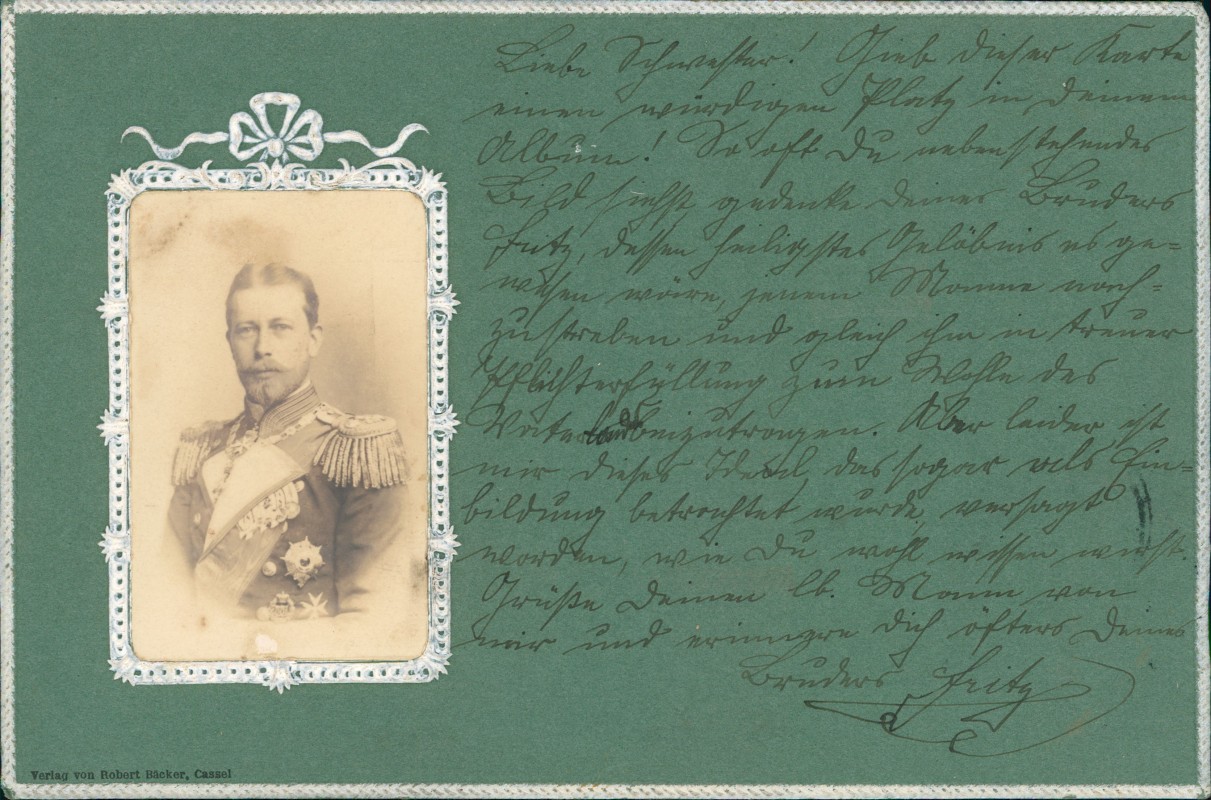 Liebe Schwester! Gieb dieser Karte
einen würdigen Platz in deinem
Album! So oft Du nebenstehendes
Bild siehst gedenke deines Bruders
Fritz, dessen heiligstes Gelöbnis es ge=
wesen wäre, jenem Manne nach=
zustreben und gleich ihm in treuer
Pflichterfüllung zum Wohle des
Vaterlandes beizutragen. Aber leider ist
mir dieses Ideal, das sogar als Ein=
bildung betrachtet wurde, versagt
worden, wie Du wohl wissen wirst.
Grüße Deinen lb. Mann von
mir und erinnere dich öfters Deines
Bruders Fritz
Verlag von Robert Bäcker, Cassel